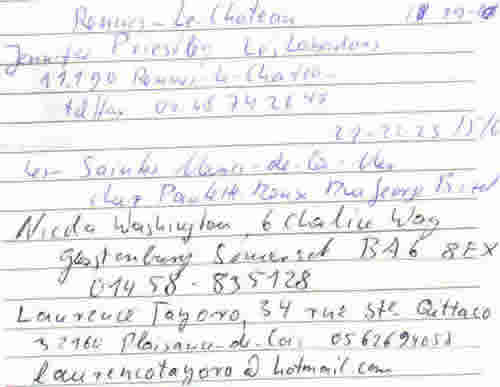 Rennes-Le-Chateau
Jennifer Le, Labadous
11190 Rennes-le-Chateau
tel/fax 04 68 74 26 47
les Saintes Maries-de-la-Mer
chez Paulette Roux
Nicola Washington, 6 Chalice Way
Glastonbury Somerset BA6 8EX
01458-835128
Laurence Tayoro, 34 rue Ste
32160 Plaisance-du-Gers 0562694058
laurencetayoro@hotmail.com